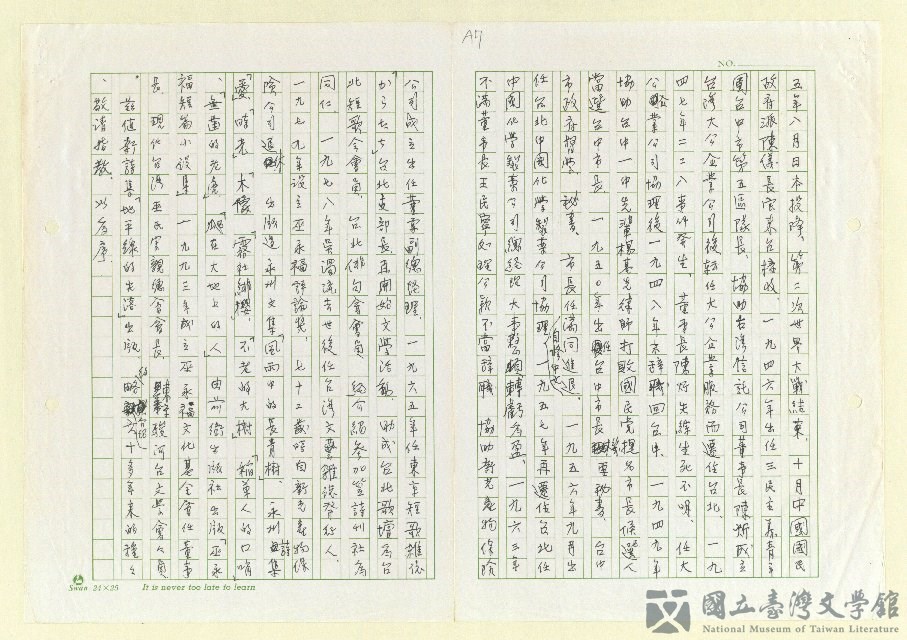 A7
NO.
五年八月日本投降。第二次世界大戰結束。十月中國國民
政府派陳儀長官來台接收。一九四六年出任三民主義青年
團台中市第五區隊長。協助台灣信託公司董事長陳炘成立
台灣大公企業公司後轉任大公企業服務而遷任台北。一九
四七年二二八事件發生，董事長陳炘失綜生死不明。任大
公企業公司協理後一九四八年末辭職回台中。一九四九年
協助台中一中先輩楊基先律師打敗國民黨提名市長候選人
當選台中市長。一九五〇年出任台中市長機要秘書。台中
市政府秘書。市長任滿同進退。一九五六年九月出
任台北中國化學製藥公司協理，一九五七年再遷任台北任
中國化學製藥公司總經理大事整頓轉虧為盈。一九六三年
不滿董事長王民寧如理公款不當辭職。協助新光產物保險
公司成立出任業務副總經理。一九六五年任東京短歌雜誌
「からたち」台北支部長再開始文學活動。助成台北歌壇為台
北短歌会會員。台北俳句會會員。經介紹參加笠詩刊社為
同仁。一九七八年吳濁流去世後任台灣文藝雜誌發行人。
一九七九年設立巫永福評論獎。七十二歲時自新光產物保
險公司退休。出版過永州文集「風雨中的長青樹」。永州詩集
「愛」「時光」「木像」「霧社緋櫻」「不老的大樹」「稻草人的口哨」
「無齒的老虎」「爬在大地上的人」由前衛出版社出版「巫永
福短篇小說集」一九九三年成立巫永福文化基金會任董事
長。現任台灣巫氏宗親總會會長。台文學會會員
茲值新詩集「地平線的失落」出版，略六十多年來的種々
，敬請指教。以為序
Swan 24×25 It is never too late to learn
國立臺灣文學館
National Museum of Taiwan Literature